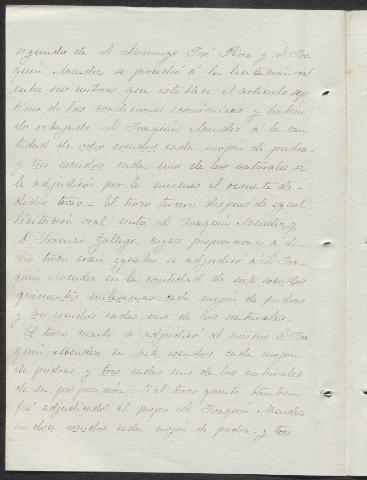 segundo de D. Domingo José Pérez y D. Joa
quin Mendez se procedió á la licitación oral
entre sus autores que establece el articulo sep
timo de las condiciones económicas y habien
do rebajado D. Joaquin Mendez á la can
tidad de ocho escudos cada mojon de piedra
y tres escudos cada uno de los naturales se
le adjudicó por la misma el remate de
dicho trozo = El trozo tercero despues de igual
licitación oral entre D. Joaquin Mendez y
D. Lorenzo Gallego, cuyas proposiciones á di
cho trozo eran iguales se adjudicó á D. Joa
quin Mendez en la cantidad de siete escudos
quinientas milesimas cada mojon de piedra
y tres escudos cada uno de los naturales.
El trozo cuarto se adjudicó al mismo D. Joa
quin Mendez en siete escudos cada mojon
de piedra y tres cada uno de los naturales
de su proposición. Y el trozo quinto tambien
fué adjudicado al propio D. Joaquin Mendez
en doce escudos cada mojon de piedra y tres